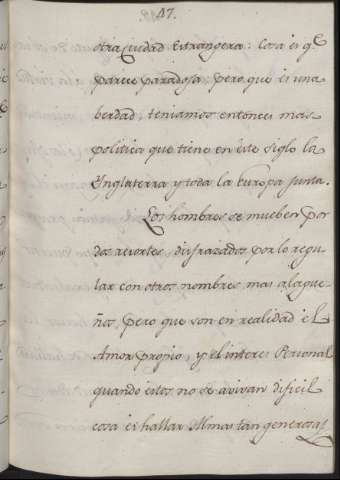 47.
otra Ciudad Estrangera: Cosa es qe
parece paradosa, pero que és una
berdad; teniamos entonces mas
politica que tiene en éste siglo la
Inglaterra y toda la Europa junta.
Los hombres se mueben por
dos resortes disfrazados por lo regu-
lar con otros nombres mas alague-
ños, pero que son en realidad él
Amor propio, y él interes Personal
quando éstos no se avivan dificil
cosa és hallar Almas tan generosas